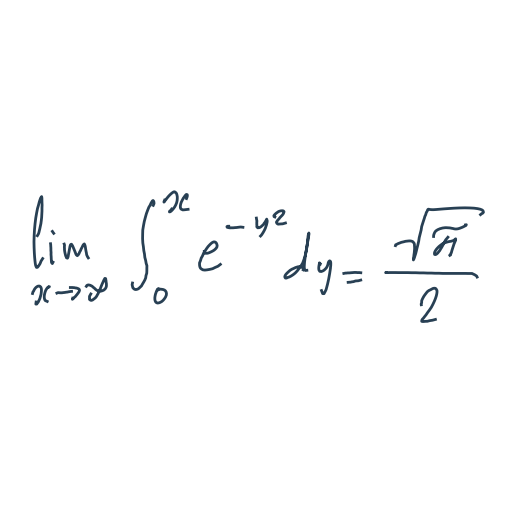 lim x→∞ ∫₀ˣ e^{-y²} dy = √π / 2